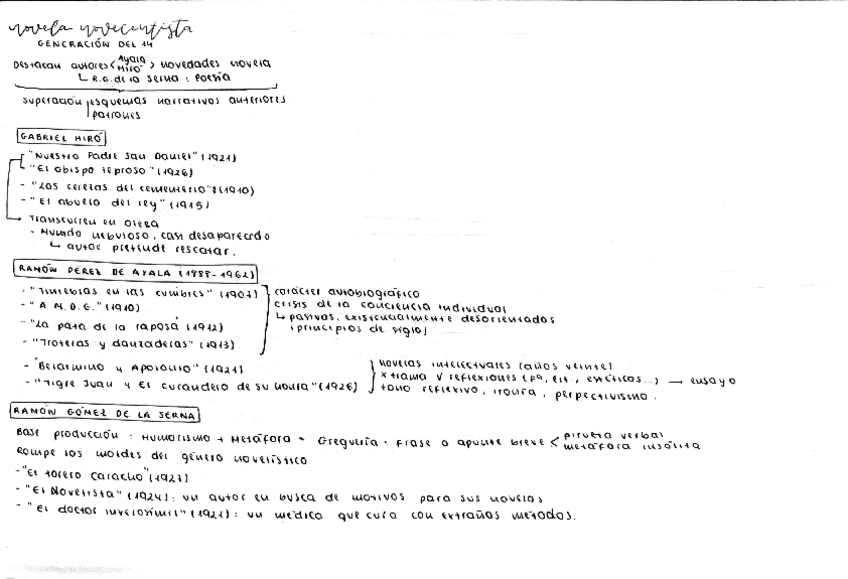 novela novecentista
GENERACIÓN DEL 14
Destacan autores < Ayala Miró > novedades novela
↳ R.G. de la Serna : Poesía
superación esquemas narrativos anteriores
patrones
GABRIEL MIRÓ
- "Nuestro Padre San Daniel" (1921)
- "El obispo leproso" (1926)
- "Las cerezas del cementerio" (1910)
- "El abuelo del rey" (1915)
Transcurren en Oleza
- Mundo nebuloso, casi desaparecido
↳ autor pretende rescatar.
RAMÓN PÉREZ DE AYALA (1888-1962)
- "Tinieblas en las cumbres" (1907)
- "A.M.D.G." (1910)
- "La pata de la raposa" (1912)
- "Troteras y danzaderas" (1913)
carácter autobiográfico
crisis de la conciencia individual
↳ pasivos, existencialmente desorientados
(principios de siglo)
- "Belarmino y Apolonio" (1921)
- "Tigre Juan y El curandero de su honra" (1926)
novelas intelectuales (años veinte)
x trama v reflexiones (pq, lit, estéticos...) → ensayo
tono reflexivo, ironía, perpectivismo.
RAMÓN GÓMEZ DE LA SERNA
Base producción : Humorismo + Metáfora = Greguería · Frase o apunte breve < pirueta verbal
metáfora insólita
Rompe los moldes del género novelístico
- "El torero Caracho" (1927)
- "El Novelista" (1924): un autor en busca de motivos para sus novelas
- "El doctor inverosímil" (1921): un médico que cura con extraños métodos.